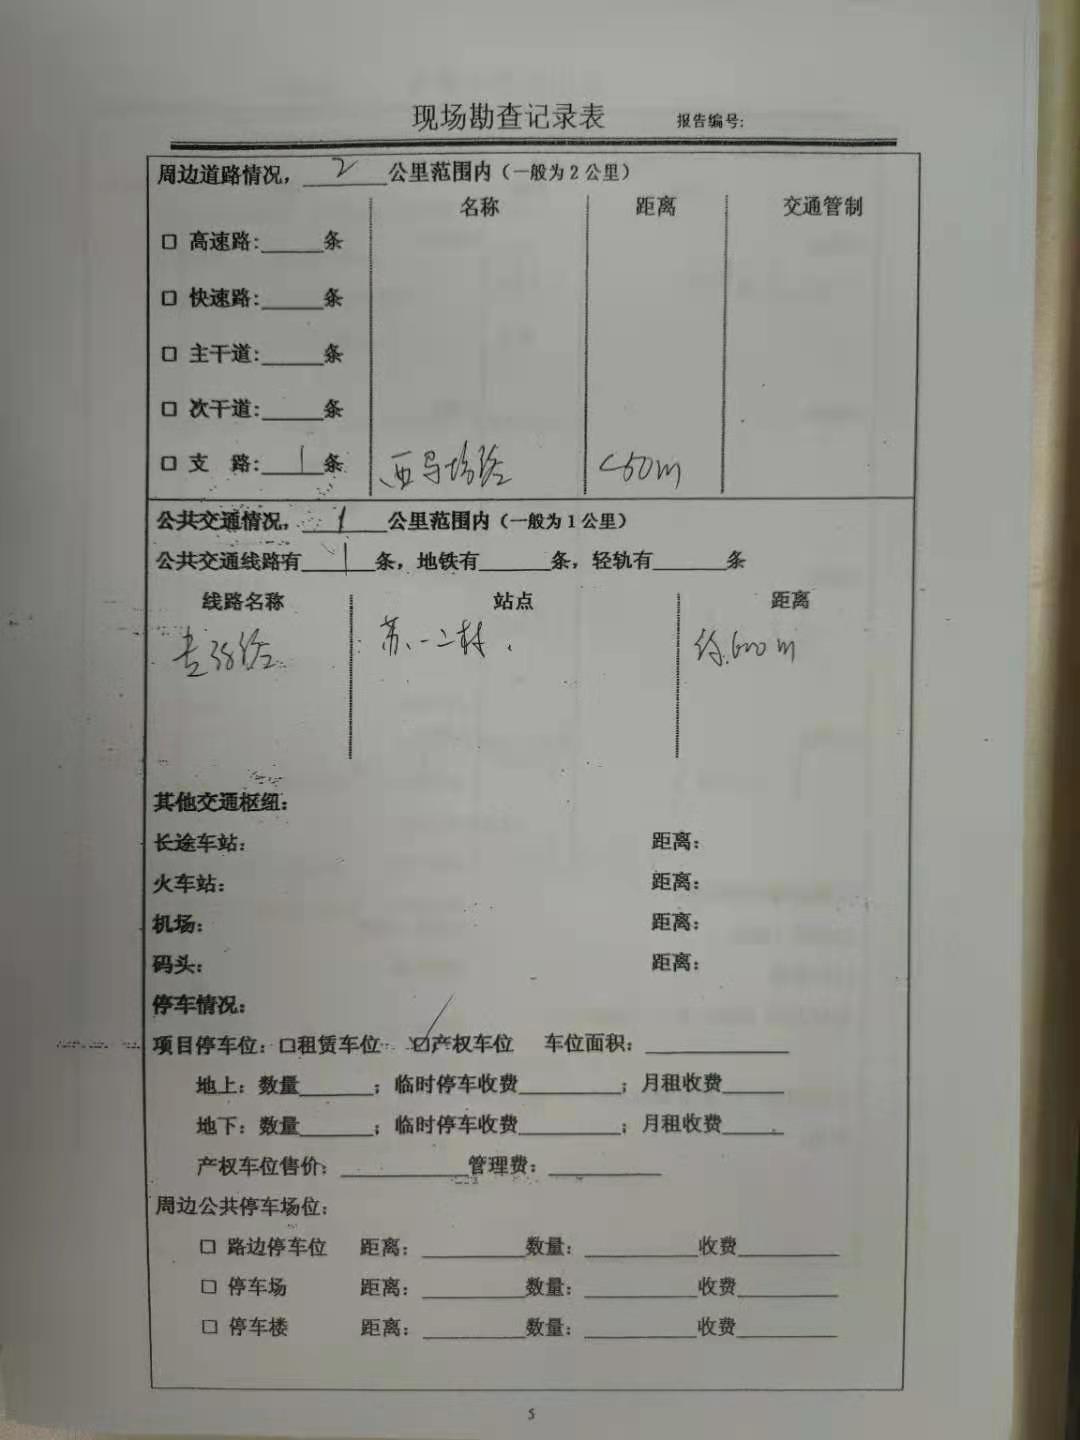 现场勘查记录表 报告编号:
周边道路情况，2公里范围内（一般为2公里）
名称 距离 交通管制
□ 高速路:______条
□ 快速路:______条
□ 主干道:______条
□ 次干道:______条
□ 支 路: 1 条 西马场路 <50m
公共交通情况， 1 公里范围内（一般为1公里）
公共交通线路有 1 条，地铁有______条，轻轨有______条
线路名称 站点 距离
专38路 苏.一二村. 约.600m
其他交通枢纽:
长途车站: 距离:
火车站: 距离:
机场: 距离:
码头: 距离:
停车情况:
项目停车位: □租赁车位 ☑产权车位 车位面积:______
地上: 数量______; 临时停车收费______; 月租收费______
地下: 数量______; 临时停车收费______; 月租收费______
产权车位售价:______管理费:______
周边公共停车场位:
□ 路边停车位 距离:______数量:______收费______
□ 停车场 距离:______数量:______收费______
□ 停车楼 距离:______数量:______收费______
5